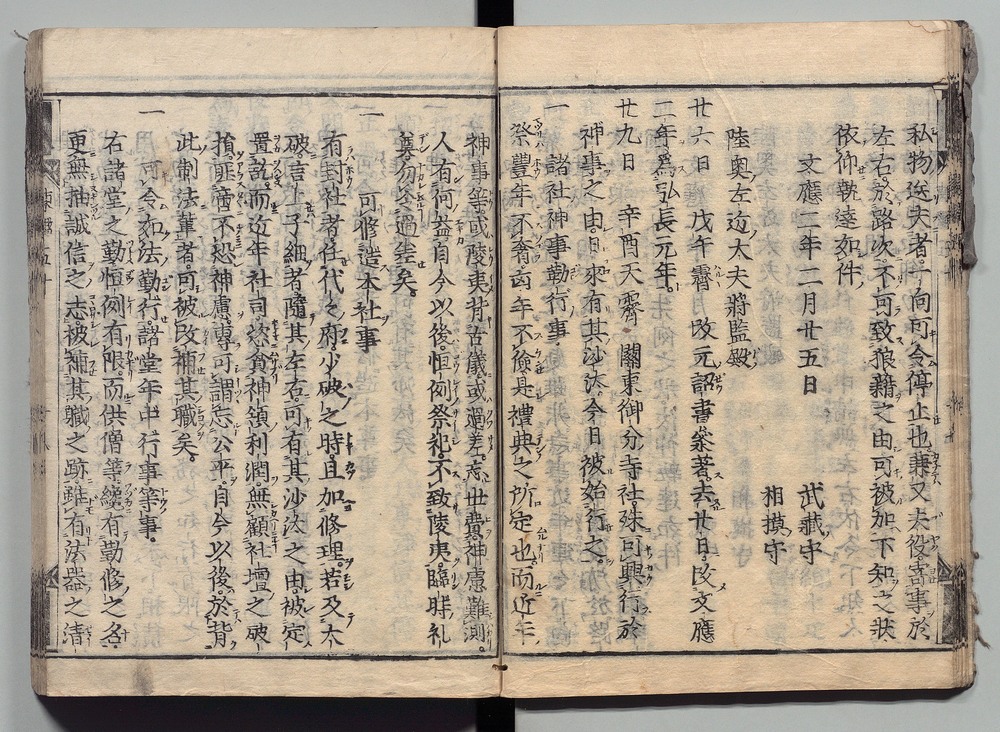 私物送夫者。一向可令停止也。兼又夫役。寄事於
左右。於路次不可致狼藉之由。可被加下知之状
依仰執達如件
文應二年二月廿五日
武藏守
相摸守
陸奥左近大夫將監殿
廿六日 戊午霽 改元詔書参著。去廿日。改文應
二年爲弘長元年。
廿九日 辛酉天霽。關東御分寺社。殊可興行於
神事之由。日來有其沙汰。今日被始行之。
一 諸社神事勤行事
祭豊年不奢。凶年不儉。是禮典之所定也。而近年
神事等。或陵夷背古儀。或過差忘世費。神慮難測。
人有何益。自今以後。恒例祭祀。不致陵夷。臨時礼
奠。勿令過差矣。
一 可修造本社事
有封社者。任代々府。少破之時。且加修理。若及大
破。言上子細者。隨其左右。可有其沙汰之由。被定
置訖。而近年社司。恣貪神領利潤。無顧社壇之破
損。匪啻不恐神慮。専可謂忘公平。自今以後。於背
此制法輩者。可被改補其職矣。
一 可令如法勤行諸堂年中行事等事。
右諸堂之勤。恒例有限。而供僧等。纔有勤修之名。
更無抽誠信之志。被補其職之跡。雖有法器之清